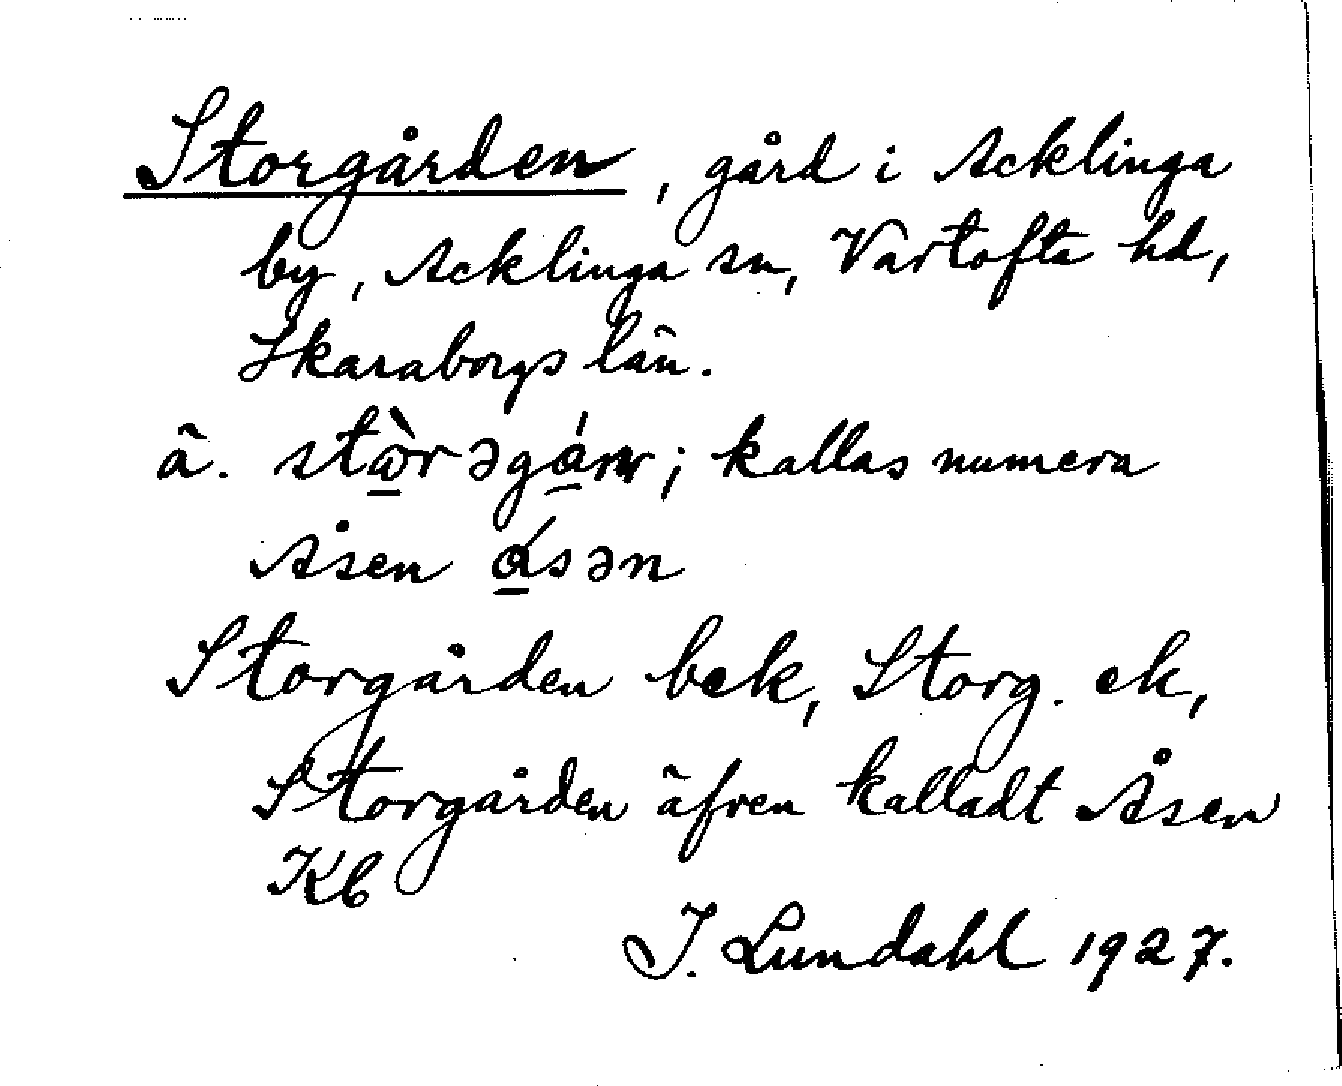 Storgården, gård i Acklinga
by, Acklinga sn, Vartofta hd,
Skaraborgs län.
ä. stɷ̀rəgán; kallas numera
Åsen ásən
Storgården bek, Storg. ek,
Storgården äfven kalladt Åsen
Kb
I. Lundahl 1927.